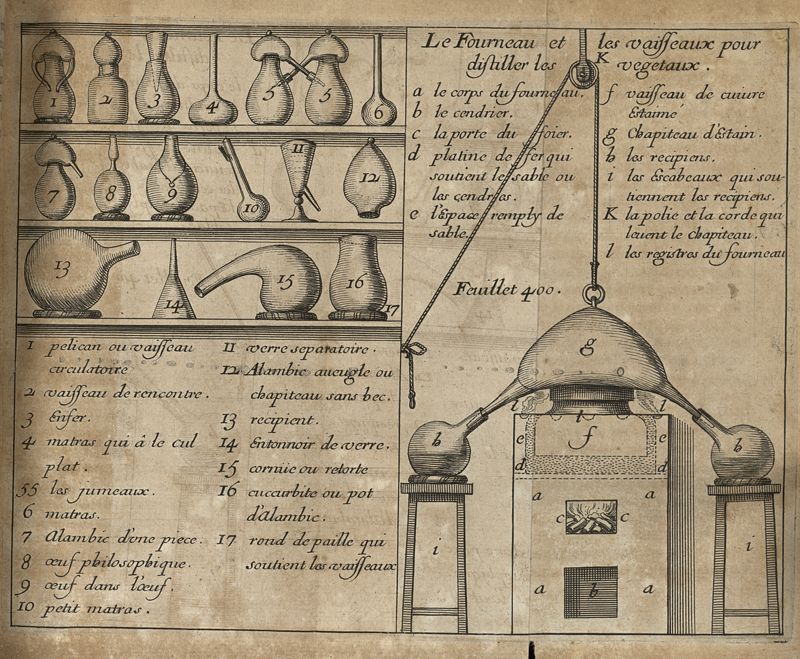 Le Fourneau et les vaisseaux pour
distiller les vegetaux.
a le corps du fourneau.
b le cendrier.
c la porte du ffoier.
d platine de ffer qui
soutient le sable ou
les cendres.
e l'Espace remply de
sable.
f vaisseau de cuiure
Estaimé
g Chapiteau d'Estain.
h les recipiens.
i les Escabeaux qui sou-
tiennent les recipiens.
K la polie et la corde qui
leuent le chapiteau.
l les registres du fourneau
Feuillet 400.
1
2
3
4
5
5
6
7
8
9
10
11
12
13
14
15
16
17
1 pelican ou vaisseau
circulatoire
2 vaisseau de rencontre.
3 Enfer.
4 matras qui à le cul
plat.
55 les jumeaux.
6 matras.
7 Alambic d'une piece.
8 œuf philosophique.
9 œuf dans l'œuf.
10 petit matras.
11 verre separatoire.
12 Alambic aueugle ou
chapiteau sans bec.
13 recipient.
14 Entonnoir de verre.
15 cornue ou retorte
16 cuccurbite ou pot
d'Alambic.
17 rond de paille qui
soutient les vaisseaux
K
g
l
l
l
h
e
f
e
h
d
d
a
a
c
c
i
i
a
b
a